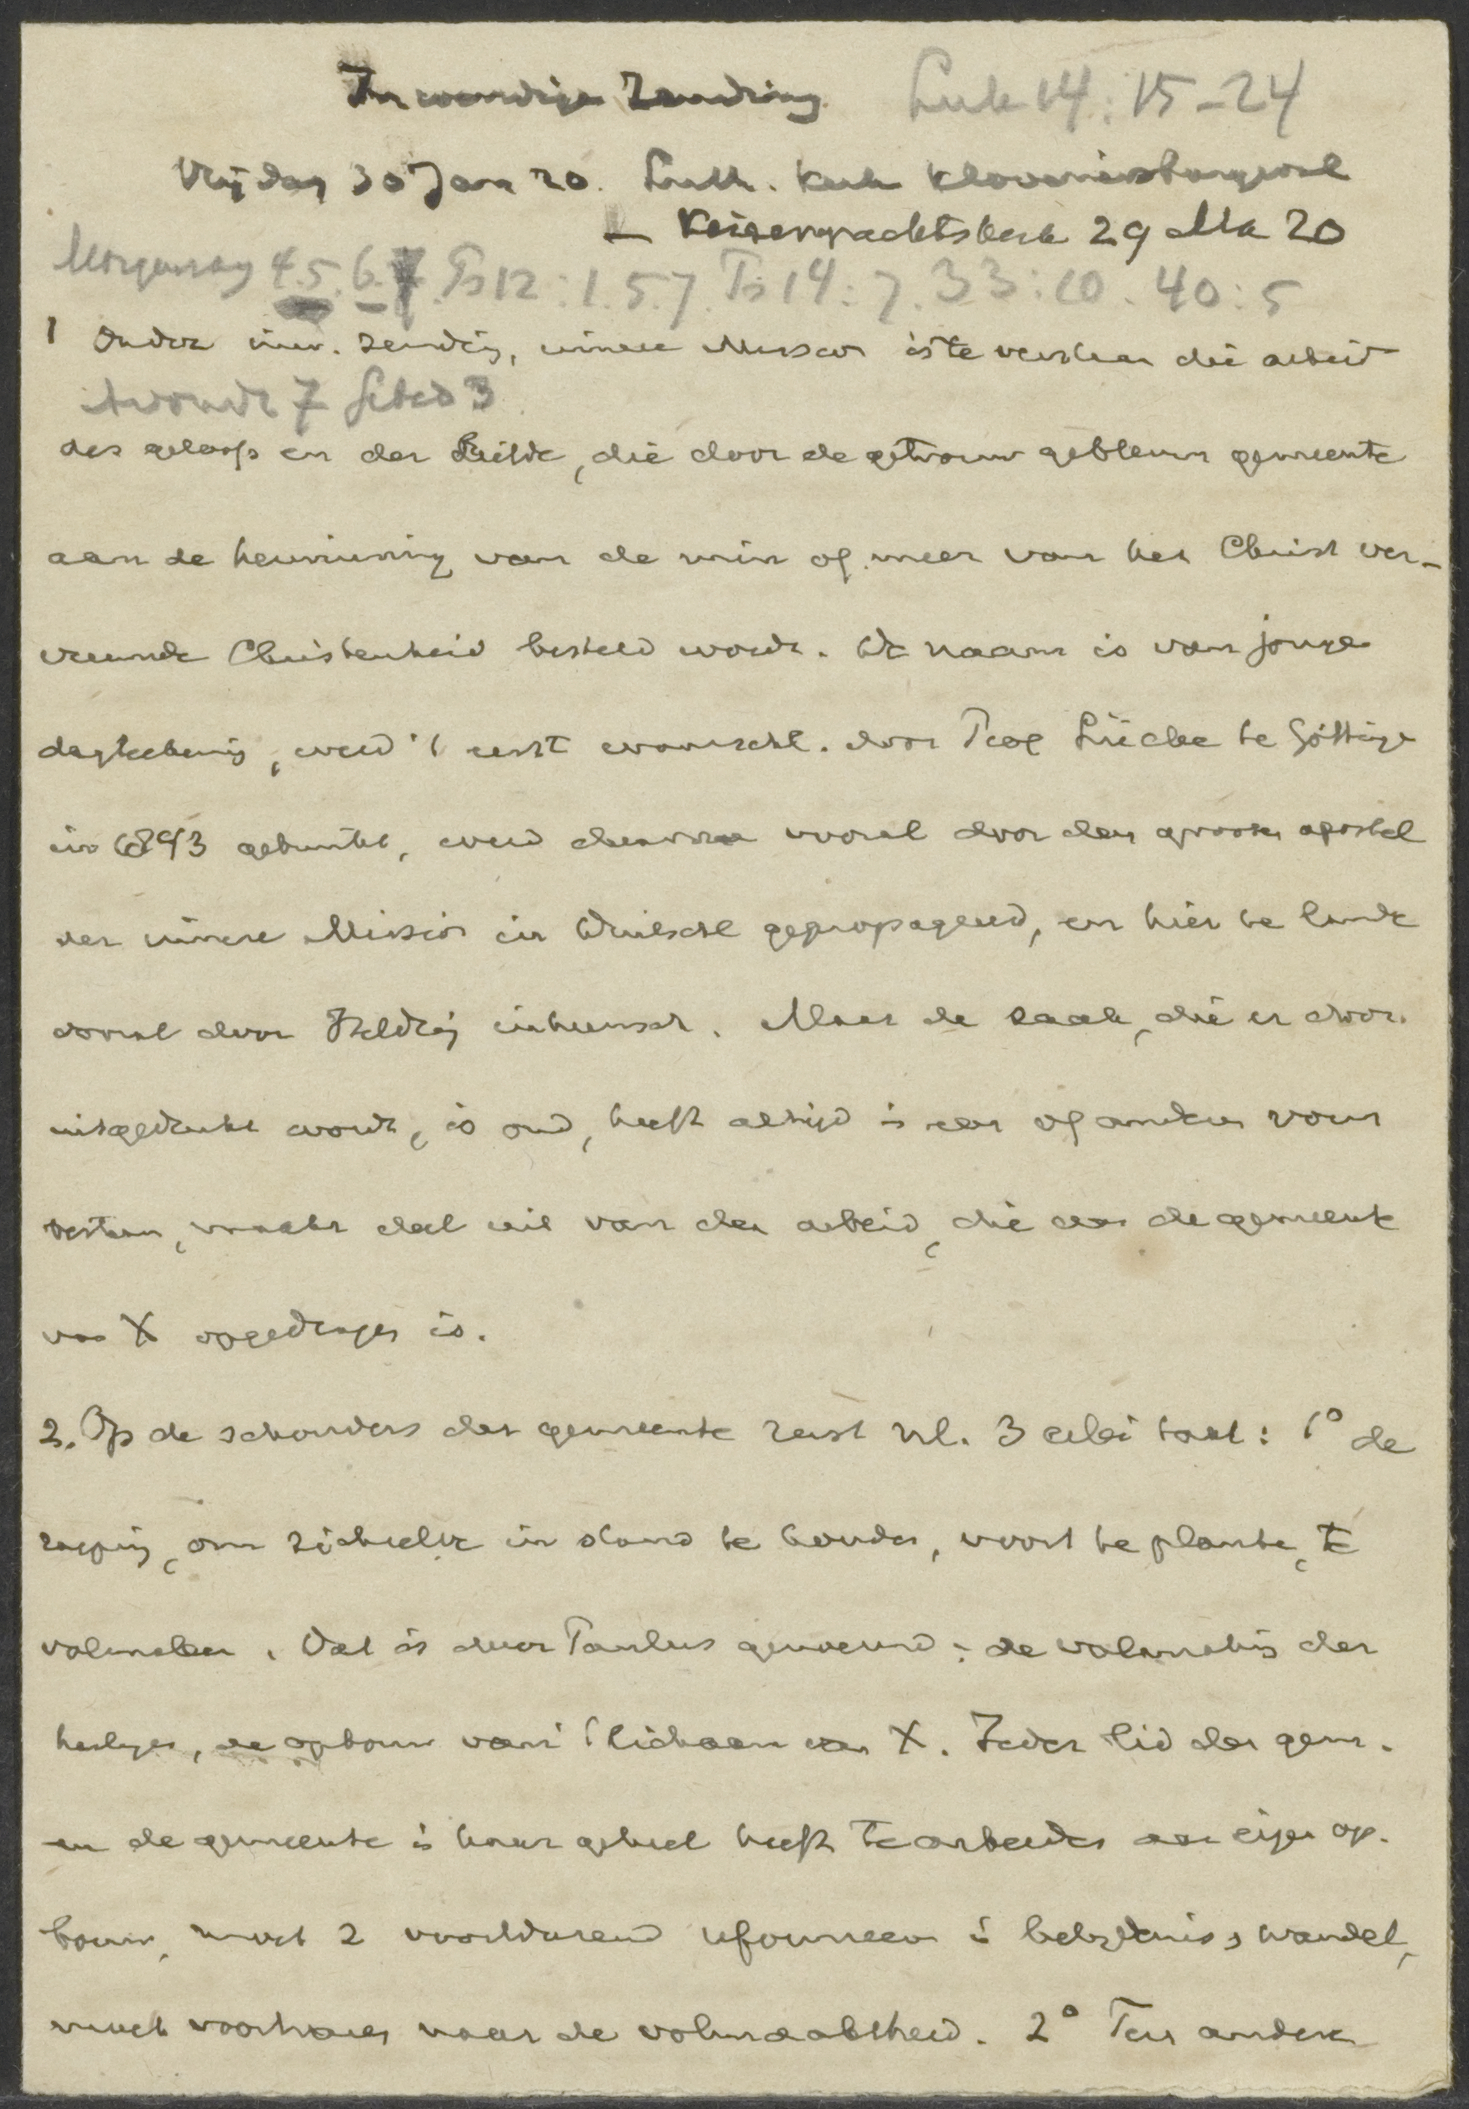 Inwendige Zending. Luk 14:15-24
Vrijdag 30 Jan 20. Luth. Kerk Kloveniersburgwal
Keizersgrachtskerk 29 Mr 20
Morgenzang 4.5.6.7. Ps 12:1.5.7. Ps 14:7. 33:10. 40:5
1 Onder inw. zending, innere Mission is te verstaan die arbeid
Avondz 7 Gebed 3
des geloofs en der liefde, die door de getrouw gebleven gemeente
aan de herwinning van de min of meer van het Christ ver-
vreemde Christenheid besteed wordt. De naam is van jonge
dagteekening, werd 't eerst waarschl. door Prof Lücke te Göttinge
in 1843 gebruikt, werd daarna vooral door den grooten apostel
der innere Mission in Duitschl gepropageerd, en hier te lande
vooral door Heldring inheemsch. Maar de zaak, die er door
uitgedrukt wordt, is oud, heeft altijd in een of anderen vorm
bestaan, maakt deel uit van den arbeid, die aan de gemeente
van X opgedragen is.
2. Op de schouders der gemeente rust nl. 3 erlei taak: 1° de
roeping, om zichzelve in stand te houden, voort te planten, te
volmaken. Dat is door Paulus genoemd: de volmaking der
heiligen, de opbouw van 't lichaam van X. Ieder lid der gem.
en de gemeente in haar geheel heeft te arbeiden aan eigen op-
bouw, moet z voortdurend reformeeren in belijdenis, wandel,
moet voortvaren naar de volmaaktheid. 2° Ten andere